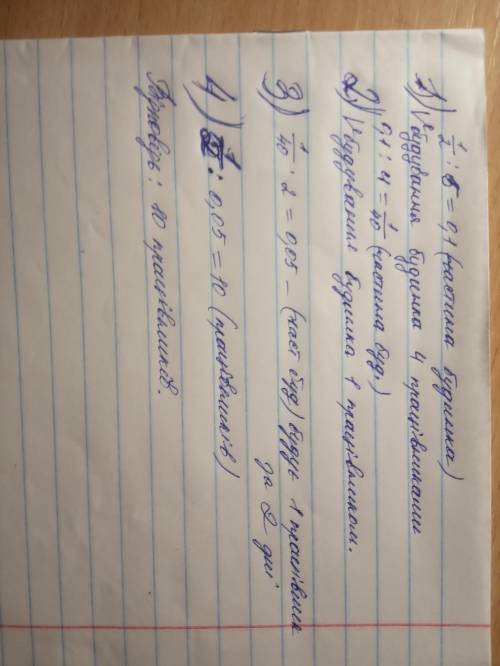 1) 1/2 : 5 = 0,1 (частина будинка)
V будування будинка 4 працівниками
0,1 : 4 = 1/40 (частина буд.)
2) V будування будинка 1 працівником.
3) 1/40 · 2 = 0,05 – (част буд) будує 1 працівник
за 2 дні
4) : 0,05 = 10 (працівників)
Відповідь: 10 працівників.